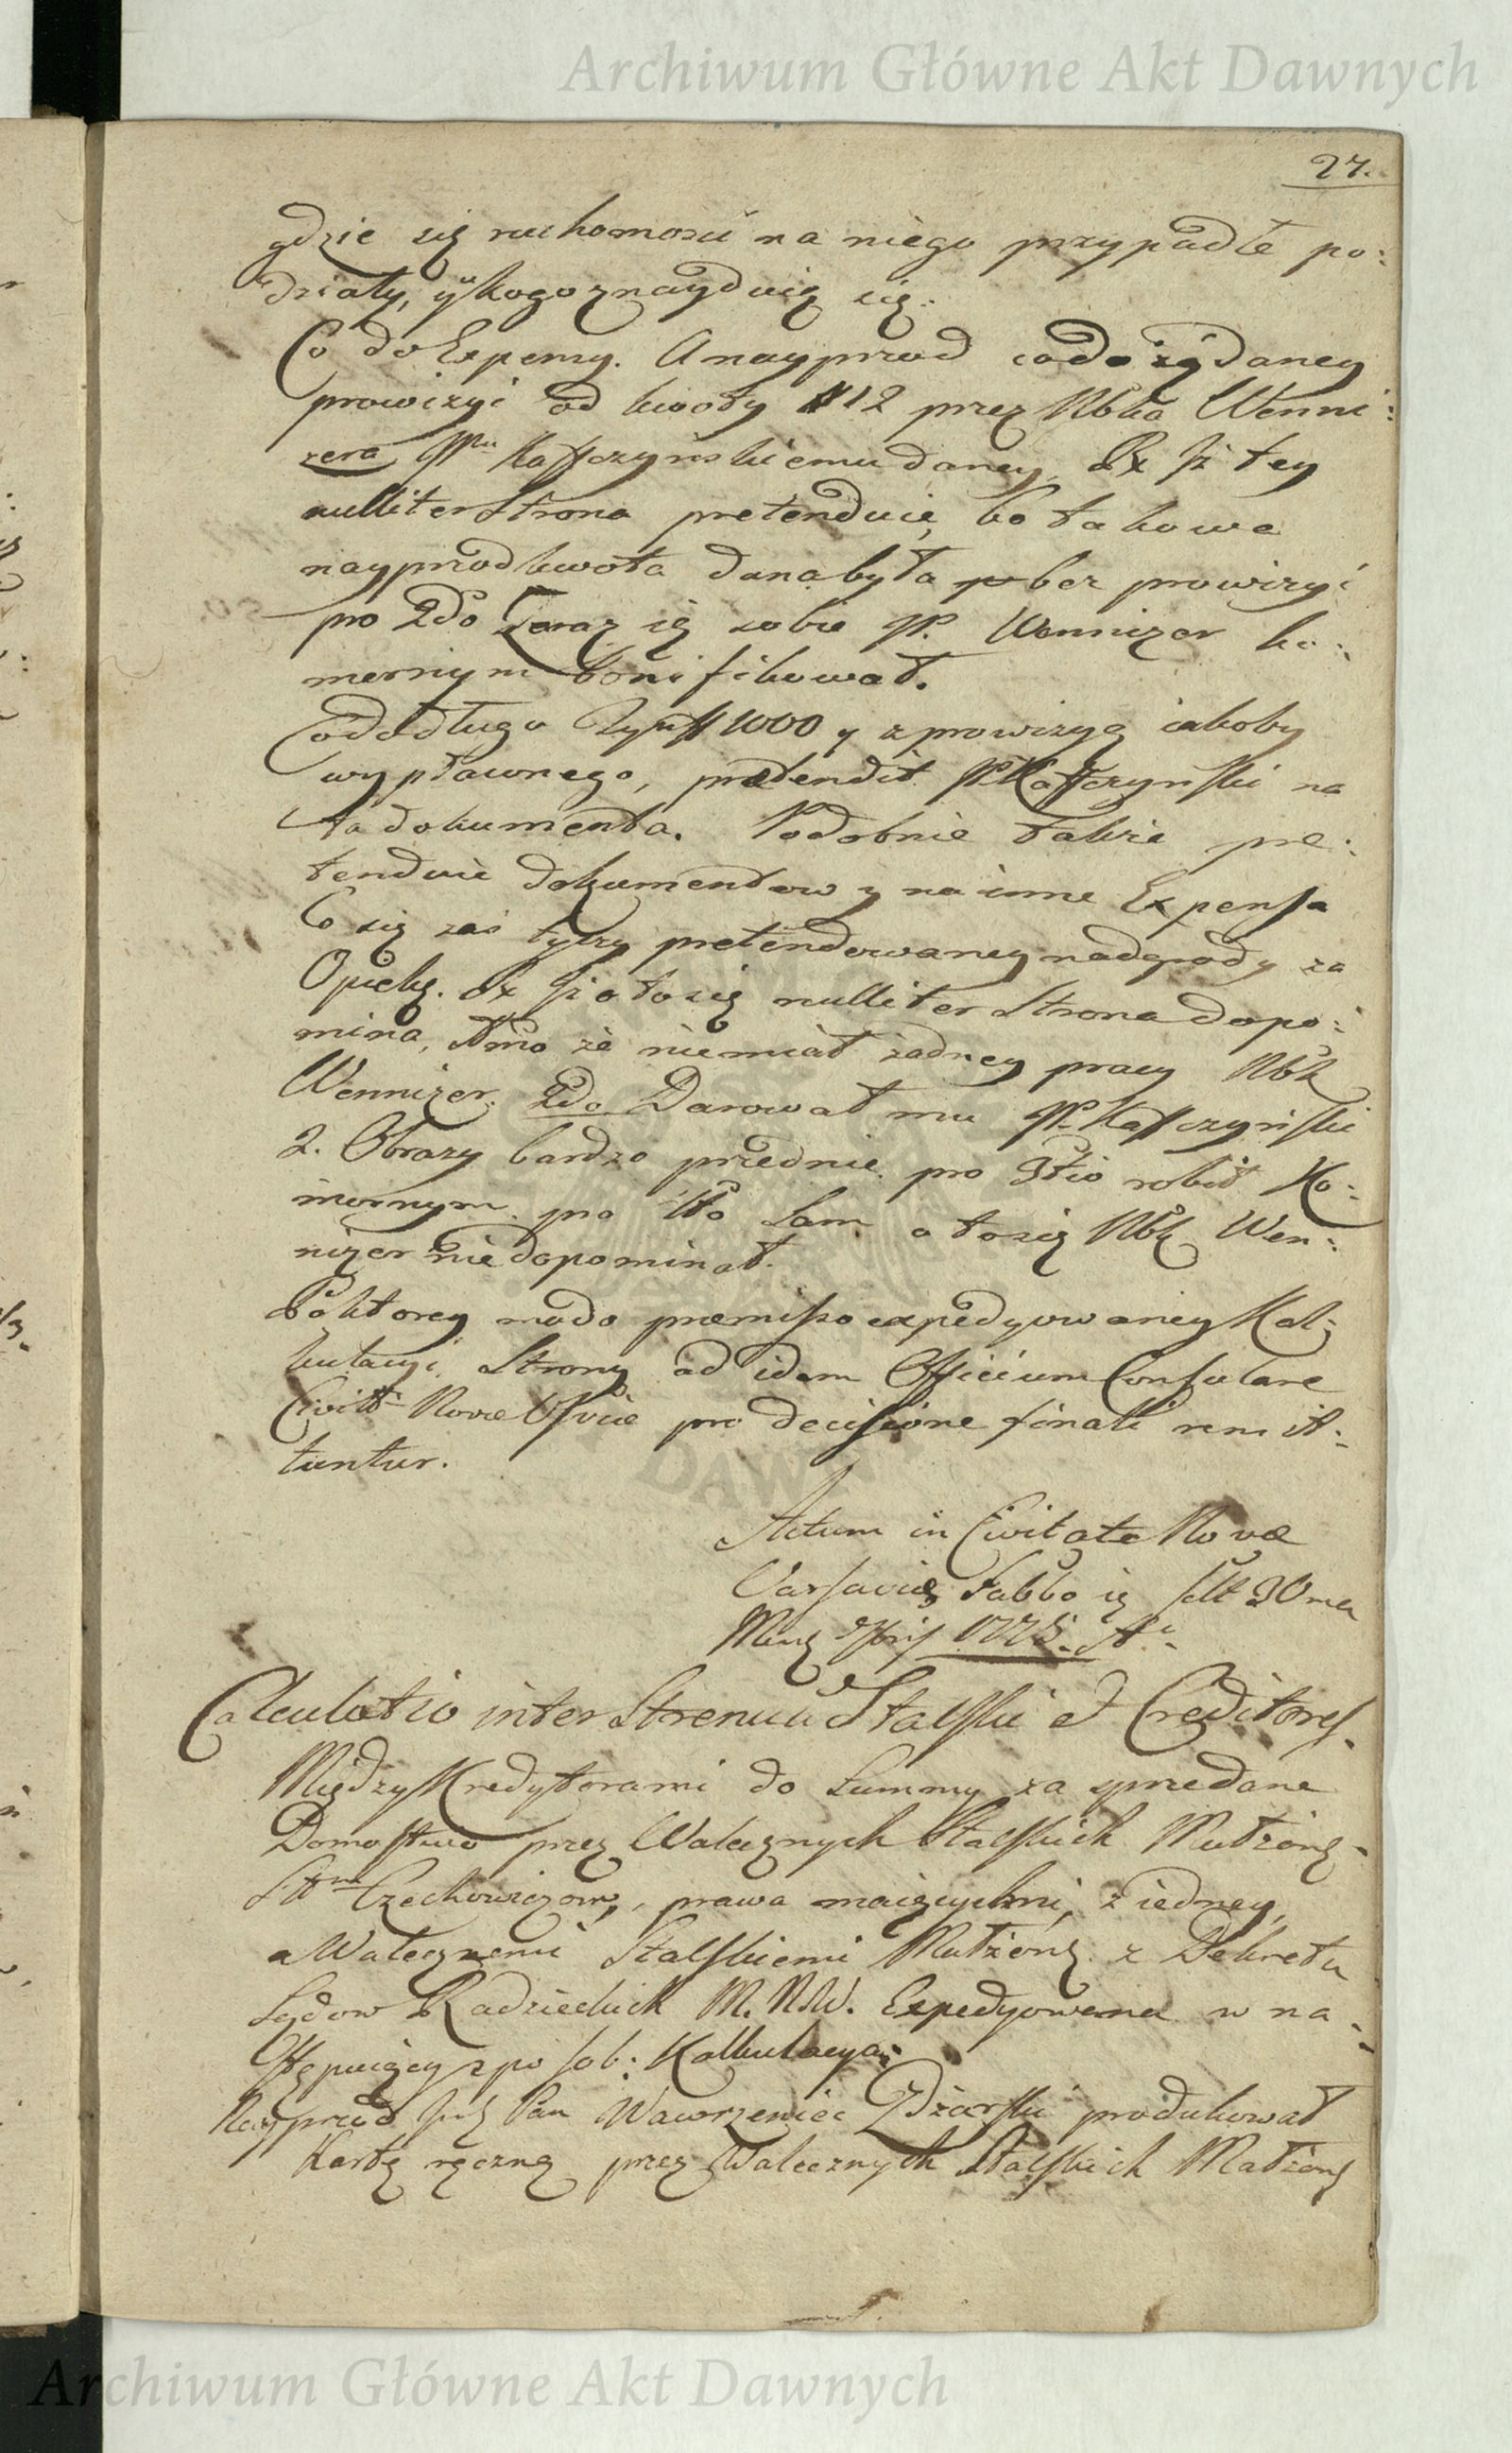 Archiwum Główne Akt Dawnych
27.
gdzie się ruchomosci na niego przypadłe po:
działy, y u kogo znayduią się.
Co do Expensy. A nayprzod co do żądaney
prowizyi od kwoty # 12 przez Nbla Wenni:
zera JPu Kaffczynskiemu daney,
nulliter Strona pretenduie, bo takowa
nayprzod kwota dana była bez prowizyi
po 2do Zaraz ią sobie JP. Wennizer ko:
mornym bonifikował.
Co do długu 1000 y z prowizyą iakoby
wypławnego, pretendit JP. Kaffczynski na
to dokumenta. Podobnie także pre:
tenduie dokumentow y na inne Expensa
Co się zaś tycze pretendowaney nadgrody za
Opiekę. o to się nulliter Strona dopo:
mina, 1mo że nie miał żadney pracy Nbl
Wennizer. 2do Darował mu JP. Kaffczynski
2. Obrazy bardzo przednie. po 3tio robił Ko:
mornym. po 4to Sam o to się Nbl Wen:
nizer nie dopominał.
Po ktorey modo præmisso expedyowaney Kal:
kulacyi, Strony ad idem Officium Consulare
Civittis Novæ Vsviæ pro decisione finali remit:
tuntur.
Actum in Civitate Nova
Varsaviæ Sabbo 30ma
1775.
Calculatio inter Strenuu Stalski et Creditores.
Między Kredytorami do Summy za sprzedane
Domostwo przez Walecznych Stalskich Małżonk.
Czechowiczom, prawa maiącychmi, z iedney,
a Walecznemi Stalskiemi Małżonk. z Dekretu
Sądow Radzieckich M. N. W. Expedyowana w na:
stępuiący sposob. Kalkulacya.
Nayprzod Pan Wawrzeniec Zdżarski produkował
Kartę ręczną przez Walecznych Stalskich Małżonk
Archiwum Główne Akt Dawnych